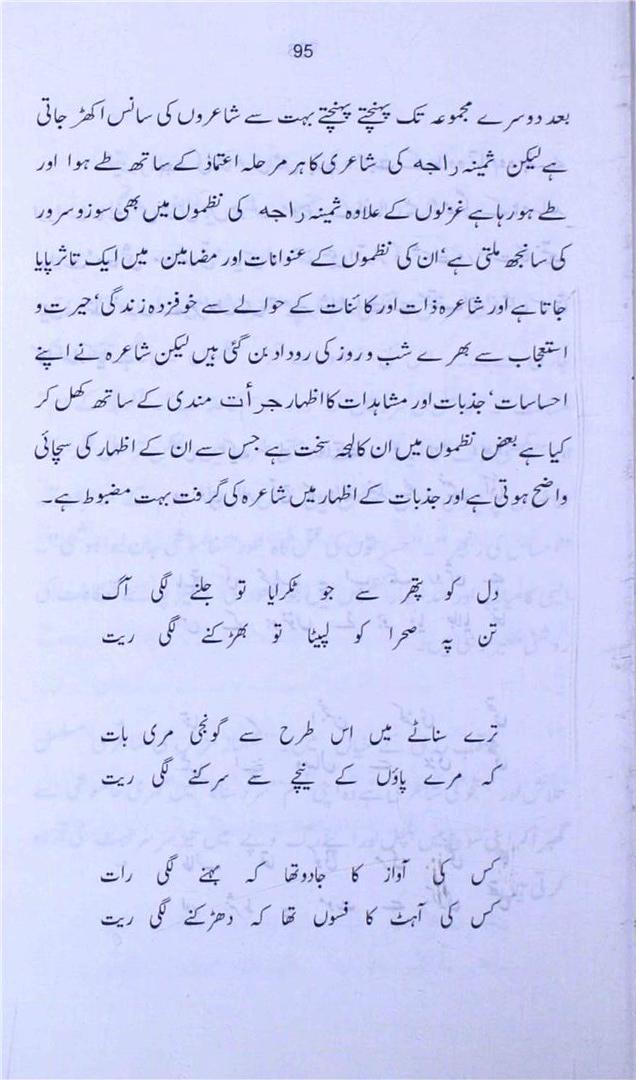 95
بعد دوسرے مجموعہ تک پہنچتے پہنچتے بہت سے شاعروں کی سانس اکھڑ جاتی
ہے لیکن ثمینہ راجہ کی شاعری کا ہر مرحلہ اعتماد کے ساتھ طے ہوا اور
طے ہورہا ہے غزلوں کے علاوہ ثمینہ راجہ کی نظموں میں بھی سوز و سرور
کی سانجھ ملتی ہے، ان کی نظموں کے عنوانات اور مضامین میں ایک تاثر پایا
جاتا ہے اور شاعرہ ذات اور کائنات کے حوالے سے خوفزدہ زندگی، حیرت و
استعجاب سے بھرے شب و روز کی روداد بن گئی ہیں لیکن شاعرہ نے اپنے
احساسات، جذبات اور مشاہدات کا اظہار جرأت مندی کے ساتھ کھل کر
کیا ہے بعض نظموں میں ان کا لہجہ سخت ہے جس سے ان کے اظہار کی سچائی
واضح ہوتی ہے اور جذبات کے اظہار میں شاعرہ کی گرفت بہت مضبوط ہے۔
دل کو پتھر سے جو ٹکرایا تو جلنے لگی آگ
تن پہ صحرا کو لپیٹا تو بھڑکنے لگی ریت
ترے سناٹے میں اس طرح سے گونجی مری بات
کہ مرے پاؤں کے نیچے سے سرکنے لگی ریت
کس کی آواز کا جادو تھا کہ بہنے لگی رات
کس کی آہٹ کا فسوں تھا کہ دھڑکنے لگی ریت